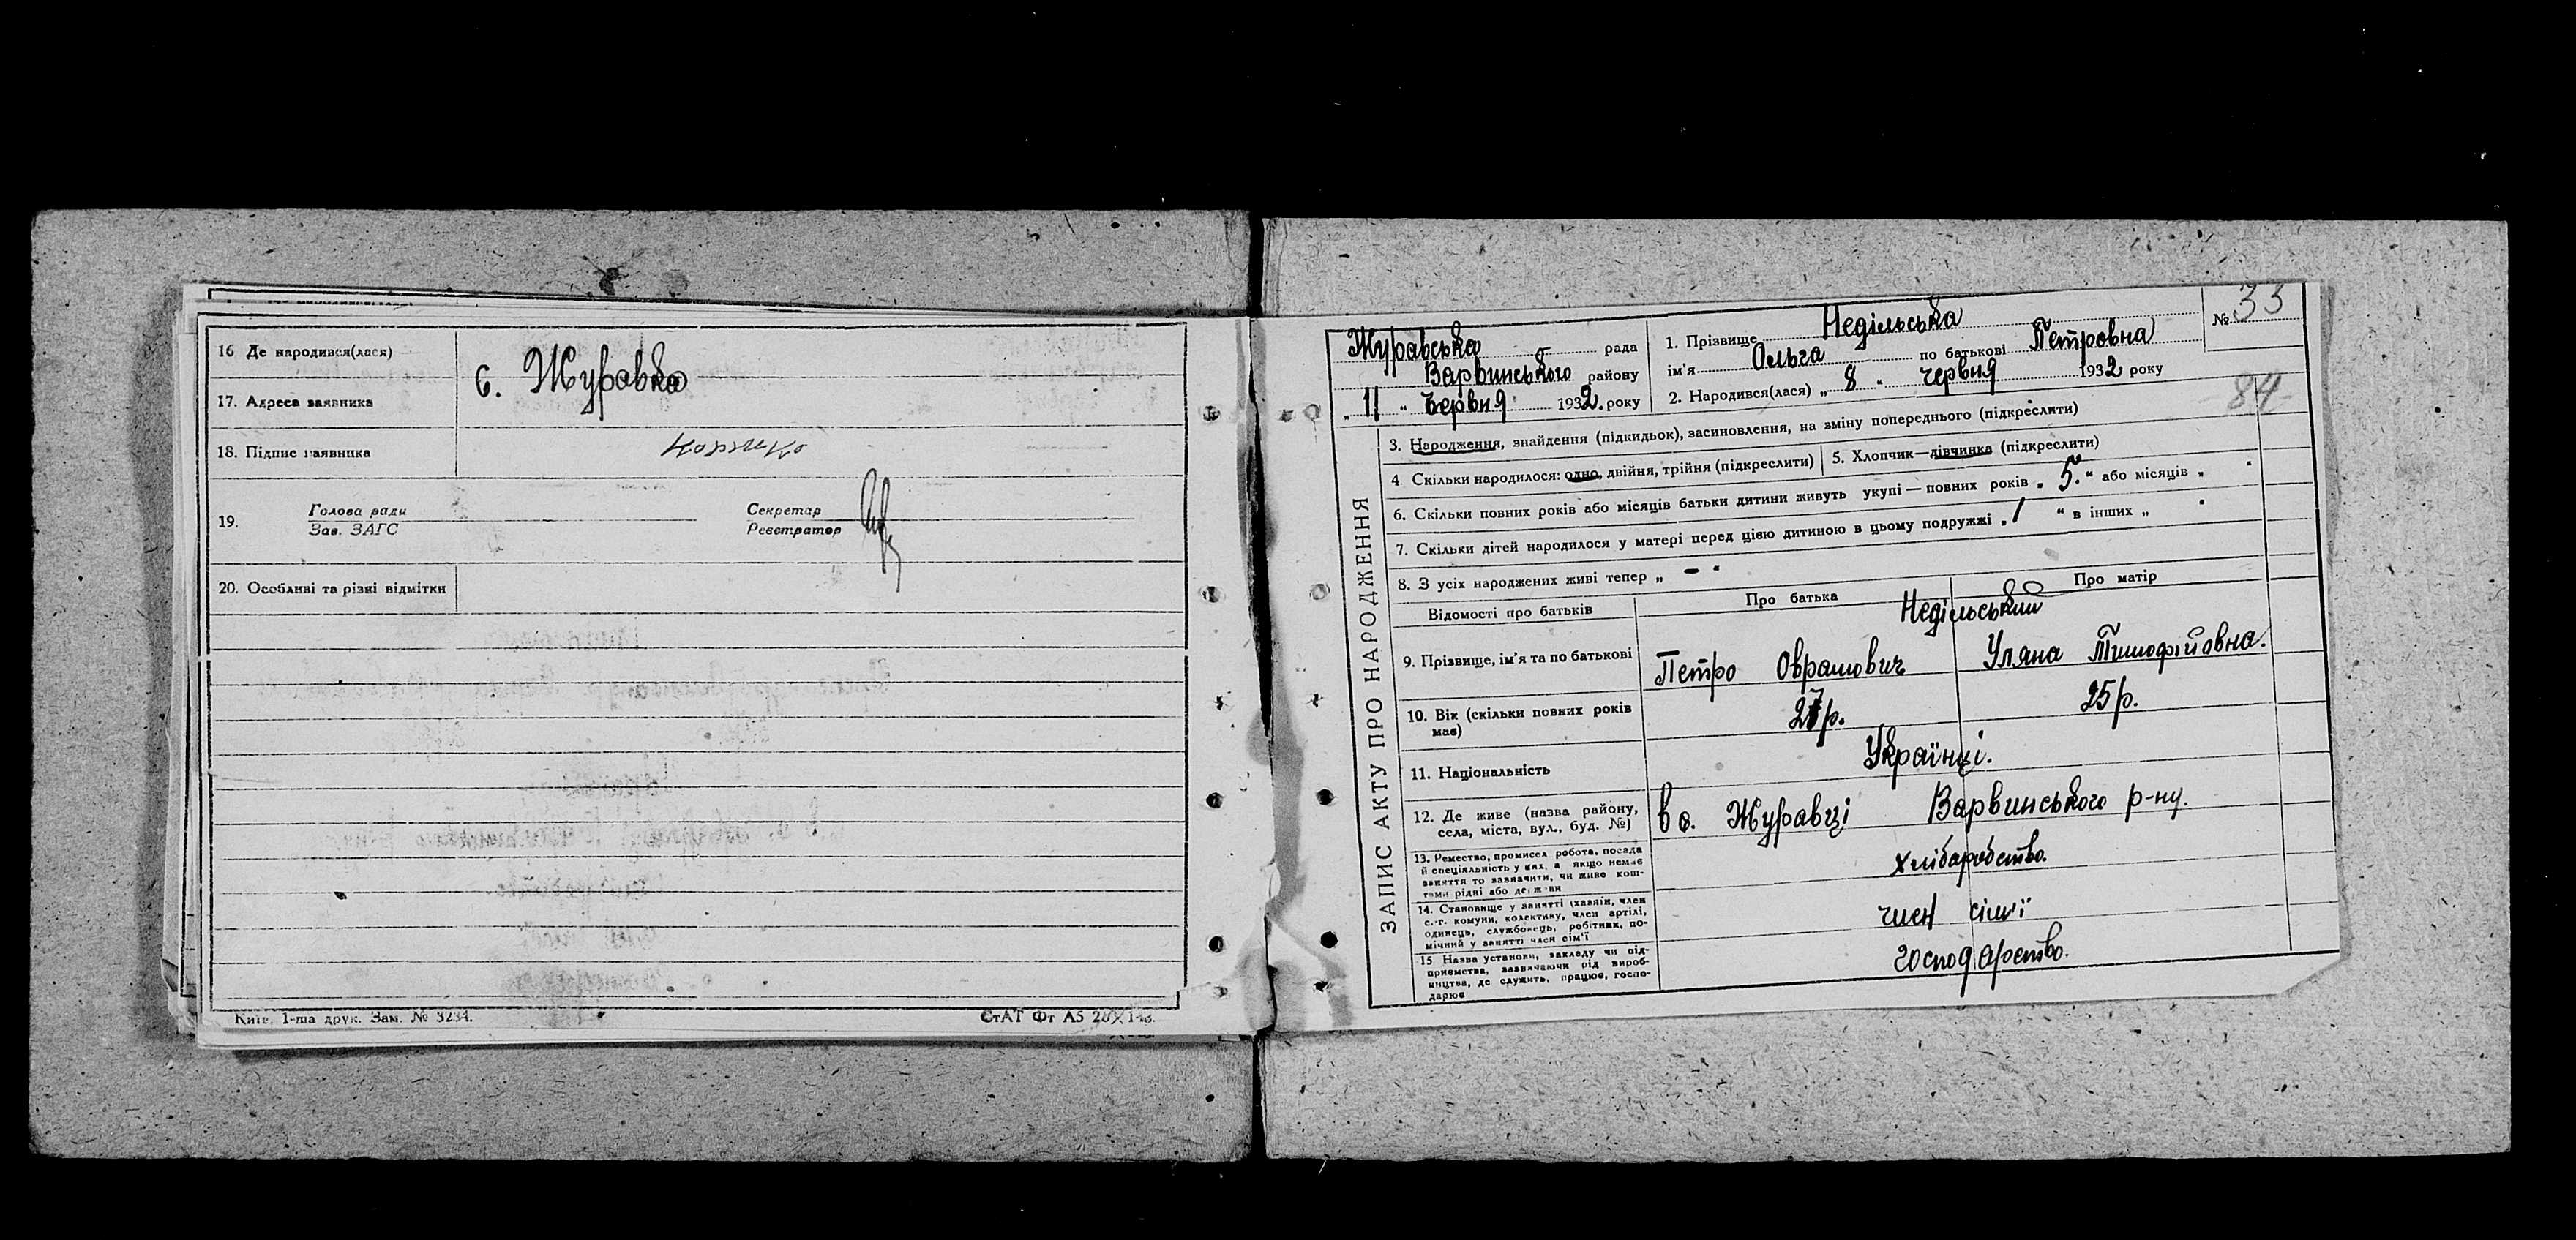 16 Де народився(лася)
с. Журавка
17. Адреса заявника
18. Підпис заявника
19. Голова ради
Зав. ЗАГС
Секретар
Реєстратор
20. Особливі та різні відмітки
Київ. 1-ша друк. Зам. № 3234.
СтАТ Фт А5
ЗАПИС АКТУ ПРО НАРОДЖЕННЯ
Журавська рада
Варвинського району
„ 11 “ Червня 1932. року
1. Прізвище Недільська
ім'я Ольга по батькові Петровна
2. Народився(лася) „ 8 “ червня 1932 року
№ 33
84
3. Народження, знайдення (підкидьок), засиновлення, на зміну попереднього (підкреслити)
4 Скільки народилося: одно, двійня, трійня (підкреслити)
5. Хлопчик—дівчинка (підкреслити)
6. Скільки повних років або місяців батьки дитини живуть укупі — повних років „ 5. “ або місяців „
7. Скільки дітей народилося у матері перед цією дитиною в цьому подружжі „ 1 “ в інших „
8. З усіх народжених живі тепер „ — “
Відомості про батьків
Про батька
Про матір
Недільський
9. Прізвище, ім'я та по батькові
Петро Оврамович
Уляна Тимофійовна.
10. Вік (скільки повних років має)
27р.
25р.
11. Національність
Українці.
12. Де живе (назва району,
села, міста, вул., буд. №)
в с. Журавці Варвинського р-ну.
13. Ремество, промисел робота, посада
й спеціяльність у них, а якщо немає
заняття то зазначити, чи живе кош-
тами рідні або держави
хліборобство.
14. Становище у занятті (хазяїн, член
с.-г. комуни, колективу, член артілі,
одинець, службовець, робітник, по-
мічний у занятті член сім'ї
член сім'ї
15 Назва установи, закладу чи під-
приємства, зазначаючи рід вироб-
ництва, де служить, працює, госпо-
дарює
господарство.